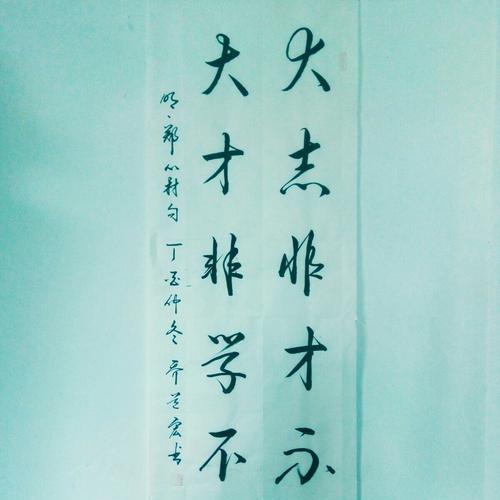 大志非才不
大才非学不
明、郑心材句 丁酉仲冬 书